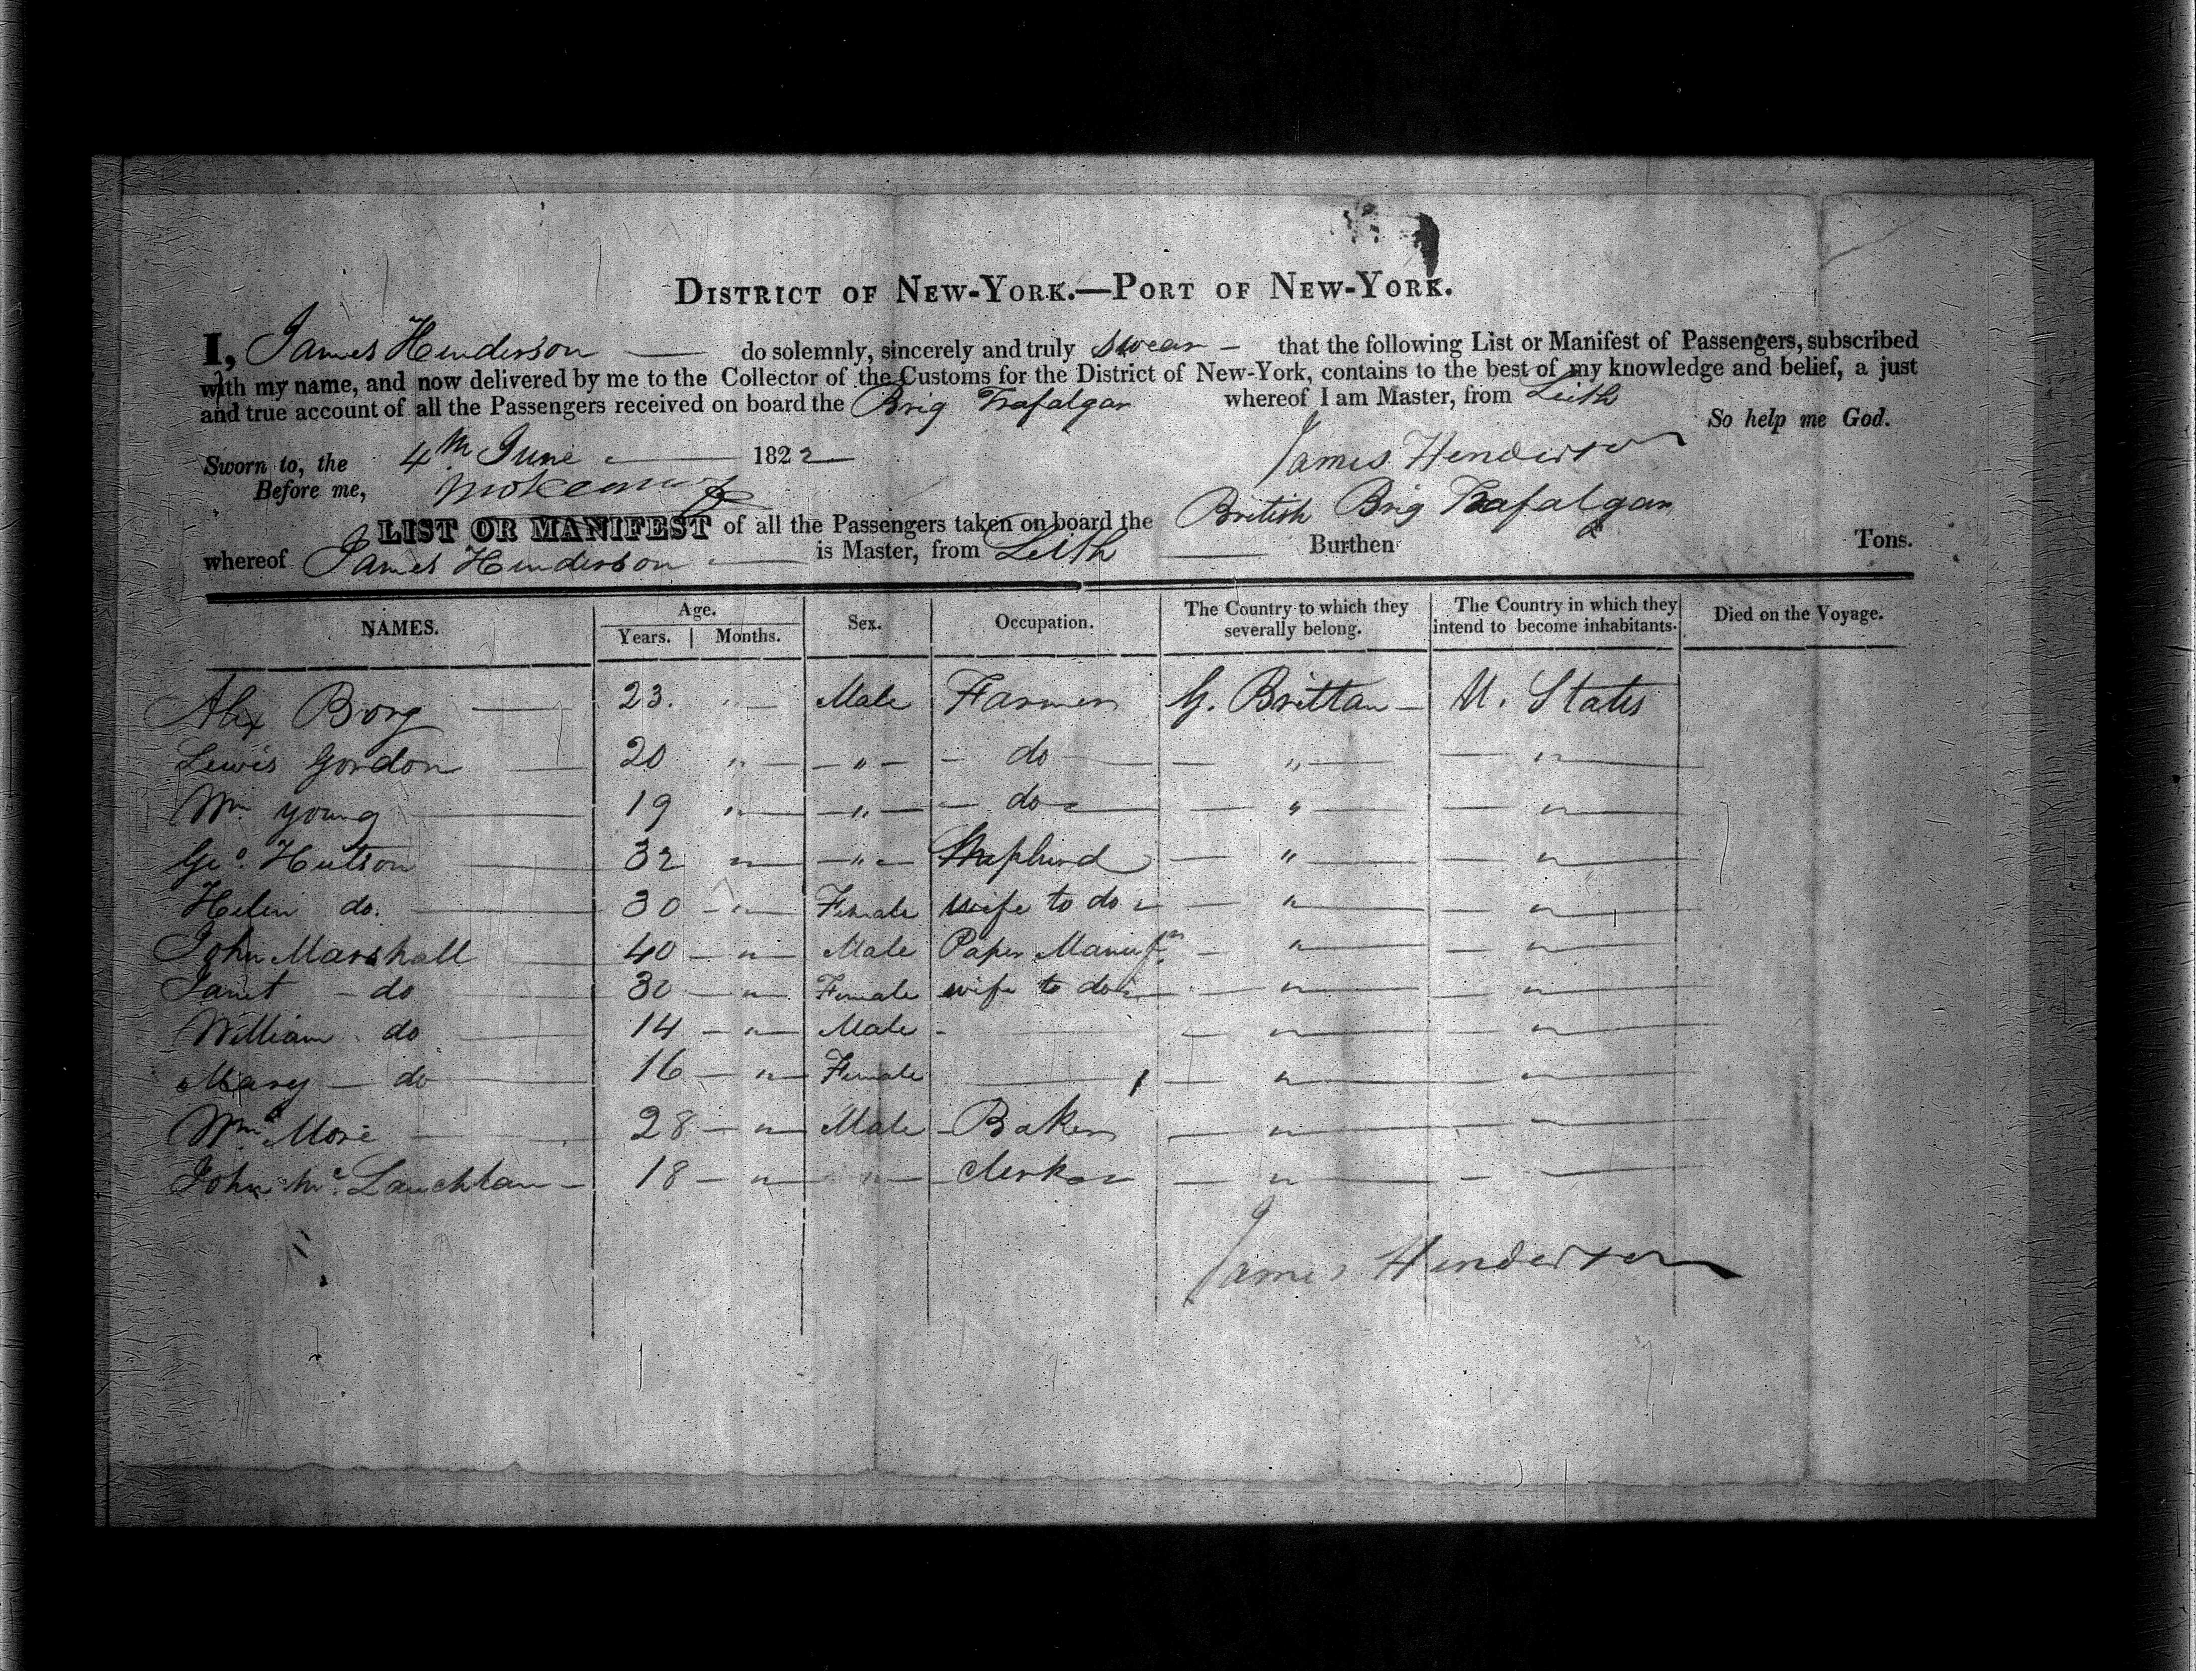 DISTRICT OF NEW-YORK.—PORT OF NEW-YORK.
I, James Henderson — do solemnly, sincerely and truly swear – that the following List or Manifest of Passengers, subscribed
with my name, and now delivered by me to the Collector of the Customs for the District of New-York, contains to the best of my knowledge and belief, a just
and true account of all the Passengers received on board the Brig Trafalgar whereof I am Master, from Leith
So help me God.
Sworn to, the 4th June — 1822 James Henderson
Before me,
LIST OR MANIFEST of all the Passengers taken on board the British Brig Trafalgar
whereof James Henderson — is Master, from Leith — Burthen Tons.
NAMES. Age. Years. Months. Sex. Occupation. The Country to which they severally belong. The Country in which they intend to become inhabitants. Died on the Voyage.
Alex Borg — 23. " — Male Farmer G. Brittan — U. States
Lewis Gordon — 20 " — " — do — " — "
Wm. Young — 19 " — " — do — " — "
Geo. Hutson — 32 " — " — Shepherd — " — "
Helen do. — 30 — " — Female wife to do — " — "
John Marshall — 40 — " — Male Paper Manufr. — " — "
Janet — do — 30 — " — Female wife to do — " — "
William do — 14 — " — Male — " — "
Mary — do — 16 — " — Female — " — "
Wm. More — 28 — " — Male Baker — " — "
John Mc. Lauchlan — 18 — " — " — Clerk — " — "
James Henderson